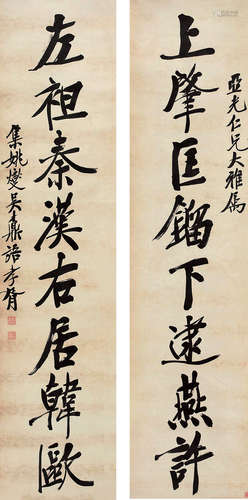 亞光仁兄大雅屬
上肇匡鎦下逮燕許
左袒秦漢右居韓歐
集姚燮吴鼒語孝胥